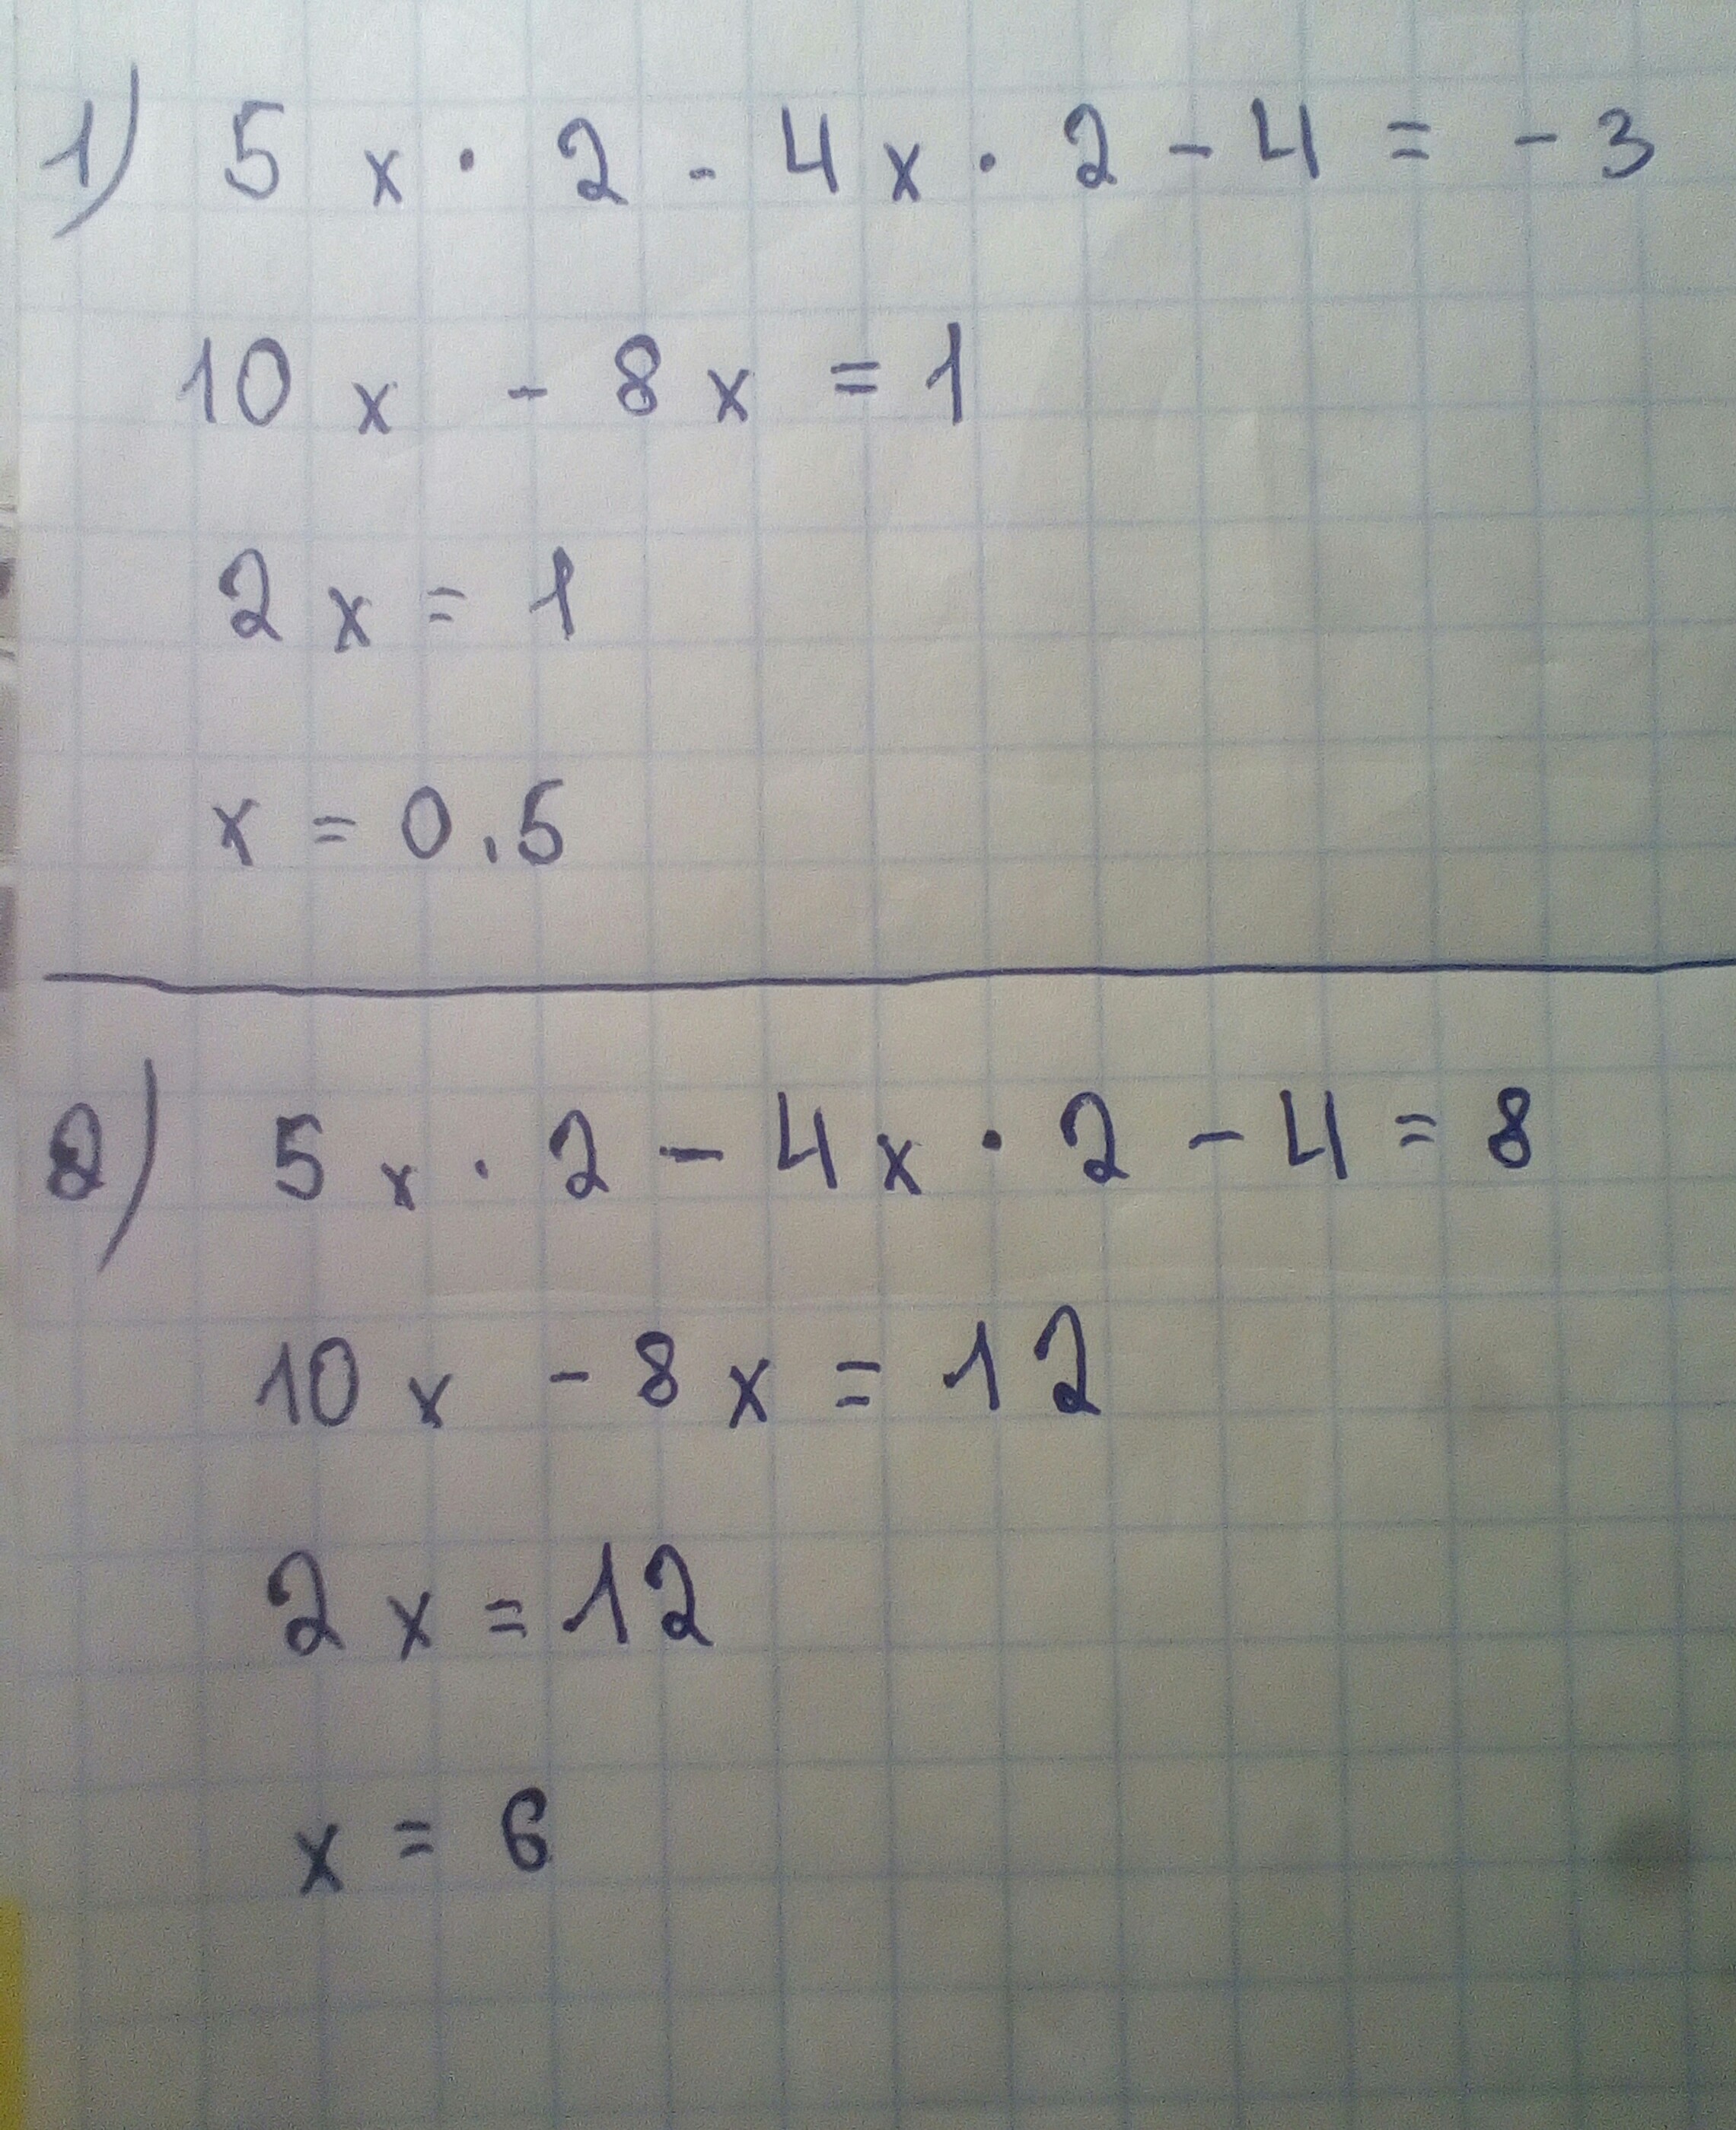 1) 5x · 2 - 4x · 2 - 4 = -3
10x - 8x = 1
2x = 1
x = 0.5
2) 5x · 2 - 4x · 2 - 4 = 8
10x - 8x = 12
2x = 12
x = 6